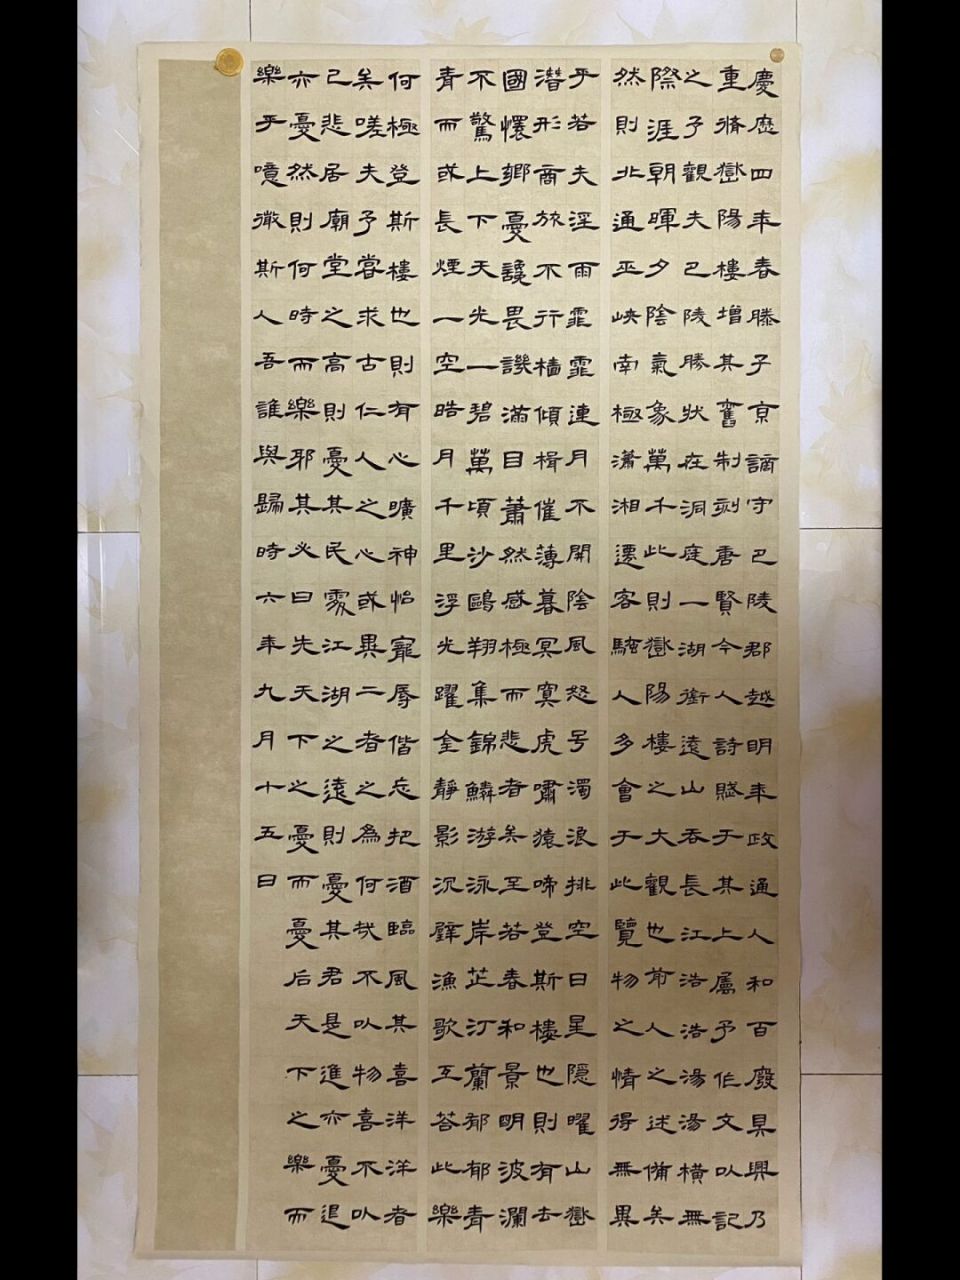 慶歷四年春滕子京謫守巴陵郡越明年政通人和百廢具興乃
重脩嶽陽樓增其舊制刻唐賢今人詩賦于其上屬予作文以記
之予觀夫巴陵勝狀在洞庭一湖銜遠山吞長江浩浩湯湯橫無
際涯朝暉夕陰氣象萬千此則嶽陽樓之大觀也前人之述備矣
然則北通巫峽南極瀟湘遷客騷人多會于此覽物之情得無異
乎若夫淫雨霏霏連月不開陰風怒号濁浪排空日星隱曜山嶽
潛形商旅不行檣傾楫催薄暮冥冥虎嘯猿啼登斯樓也則有去
國懷鄉憂讒畏譏滿目蕭然感極而悲者矣至若春和景明波瀾
不驚上下天光一碧萬頃沙鷗翔集錦鱗游泳岸芷汀蘭郁郁青
青而或長煙一空晧月千里浮光躍金靜影沉璧漁歌互荅此樂
何極登斯樓也則有心曠神怡寵辱偕忘把酒臨風其喜洋洋者
矣嗟夫予嘗求古仁人之心或異二者之為何哉不以物喜不以
己悲居廟堂之高則憂其民處江湖之遠則憂其君是進亦憂退
亦憂然則何時而樂邪其必曰先天下之憂而憂后天下之樂而
樂乎噫微斯人吾誰與歸時六年九月十五日